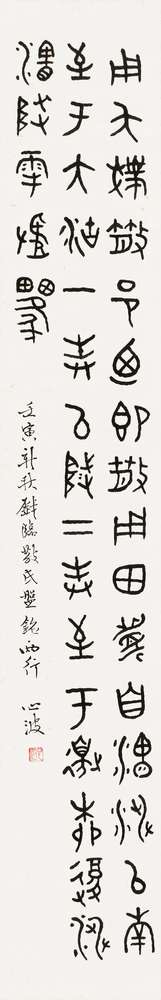 用夨撲散邑廼即散用田眉自瀗涉以南
至于大沽一奉以陟二奉至于邊柳復涉
瀗陟雩
壬寅新秋戲臨散氏盤銘兩行 心波